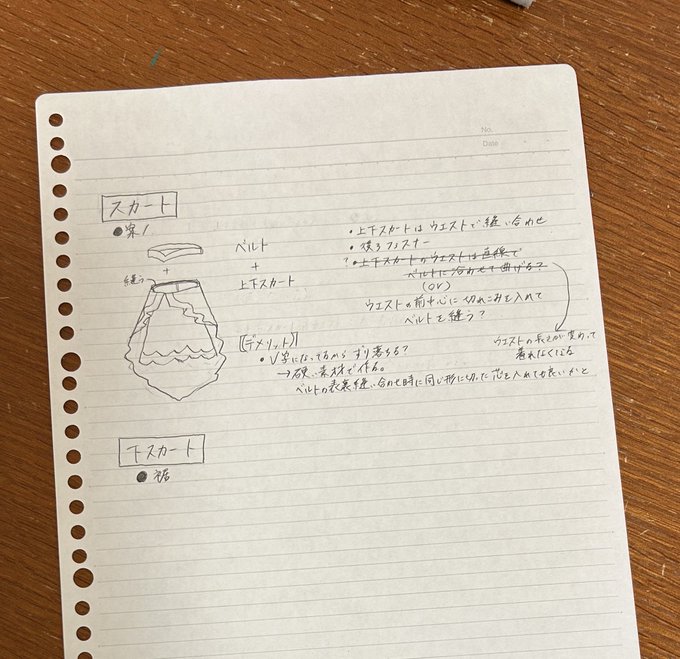 No.
Date
スカート
●案1
ベルト
+
+
縫う
上下スカート
・上下スカートはウエストで縫い合わせ
・後ろファスナー
?・上下スカートのウエストは直線で
ベルトに合わせて曲げる?
(or)
ウエストの前中心に切れこみを入れて
ベルトを縫う?
ウエストの長さが変わって
着れなくなる
【デメリット】
・V字になってるから ずり落ちる?
→硬い素材で作る。
ベルトの表裏縫い合わせ時に同じ形に切った芯を入れても良いかと
下スカート
●裾